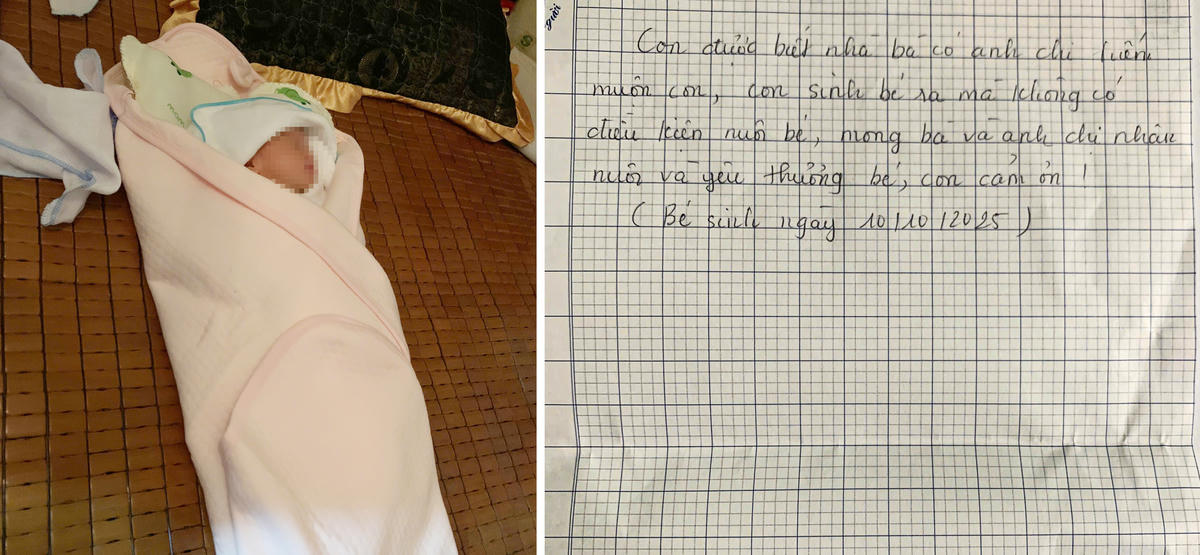 Con được biết nhà bà có anh chị hiến
muộn con, con sinh bé ra mà không có
điều kiện nuôi bé, mong bà và anh chị nhận
nuôi và yêu thưởng bé, con cảm ơn !
( Bé sinh ngày 10/10/2025 )